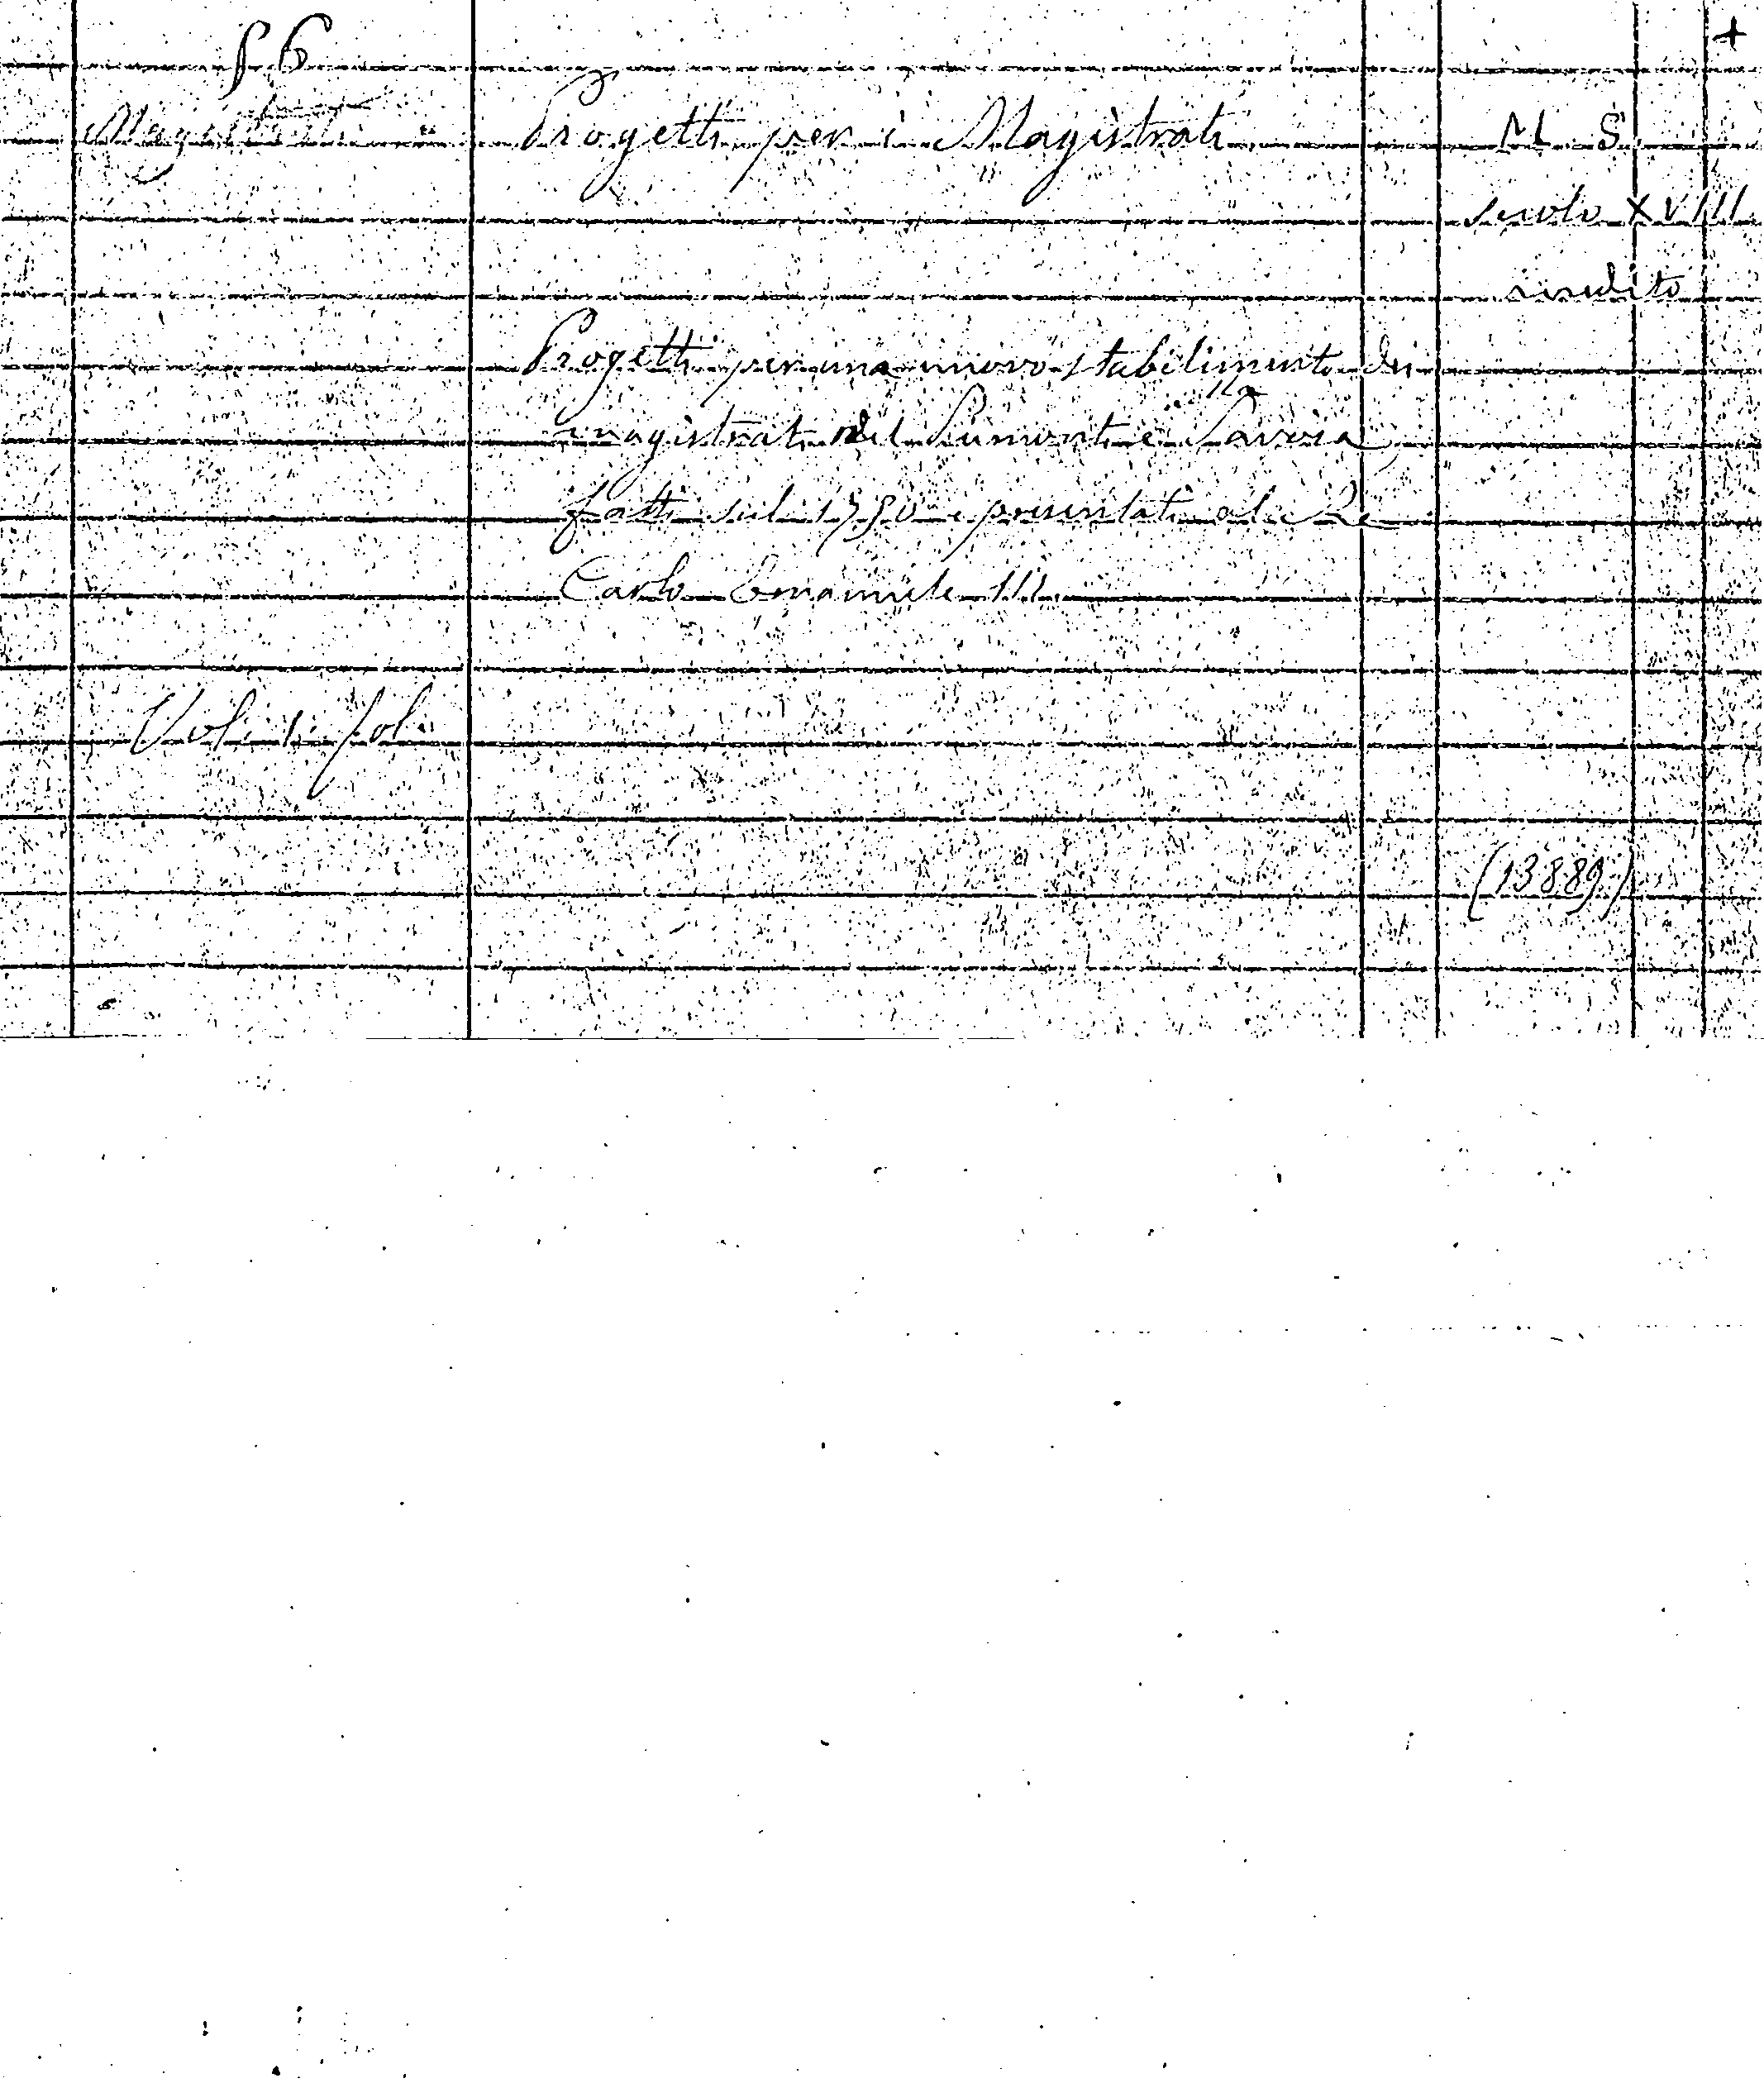 56
+
Progetti per i Magistrati
M. S.
Secolo XVIII
inedito
Progetti per una nuovo stabilimento dei
magistrati del Piemonte e Savoia
fatti sul 1730 e presentati al Re
Carlo Emanuele III.
Vol. 1. fol.
(13889)